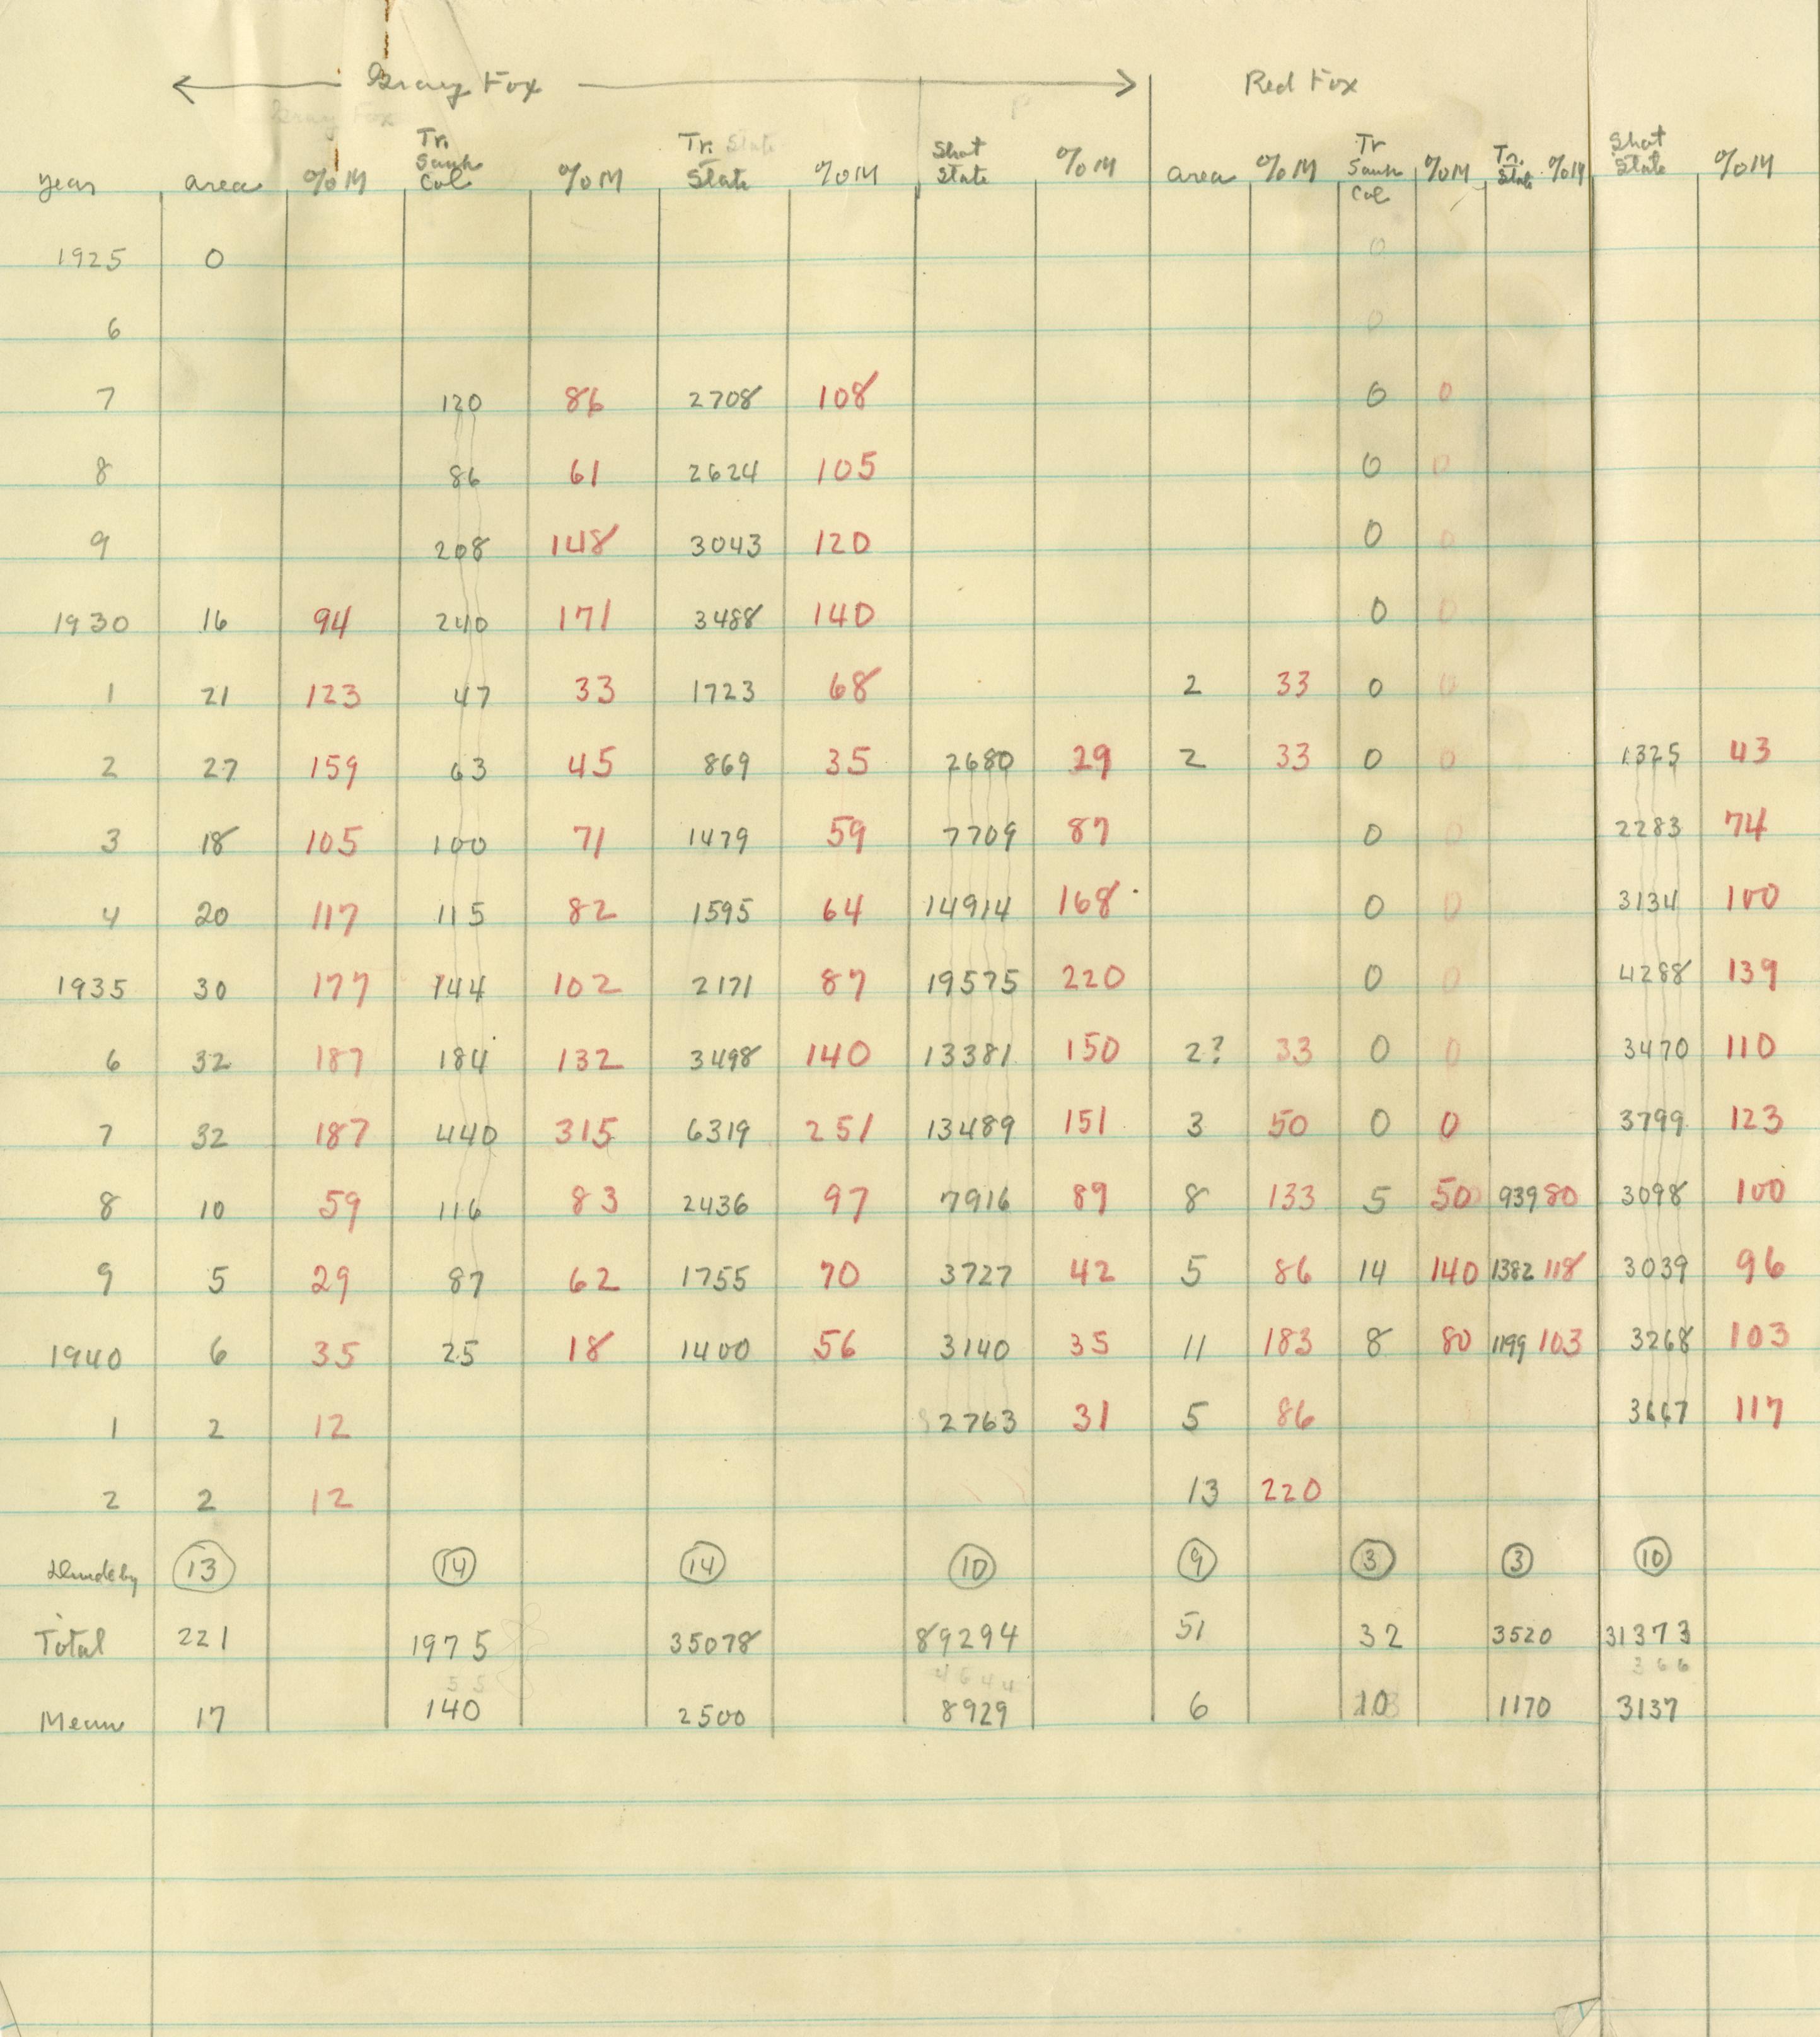 ← Gray Fox → Red Fox
Gray Fox
year area %M Tr. Sauk Co. %M Tr. State %M Shot State %M area %M Tr Sauk Co. %M Tr. State %M Shot State %M
1925 0 0
6 0
7 120 86 2708 108 0 0
8 86 61 2624 105 0 0
9 208 148 3043 120 0 0
1930 16 94 240 171 3488 140 0 0
1 21 123 47 33 1723 68 2 33 0 0
2 27 159 63 45 869 35 2680 29 2 33 0 0 1325 43
3 18 105 100 71 1479 59 7709 87 0 0 2283 74
4 20 117 115 82 1595 64 14914 168 0 0 3134 100
1935 30 177 144 102 2171 87 19575 220 0 0 4288 139
6 32 187 184 132 3498 140 13381 150 2? 33 0 0 3470 110
7 32 187 440 315 6319 251 13489 151 3 50 0 0 3799 123
8 10 59 116 83 2436 97 7916 89 8 133 5 50 939 80 3098 100
9 5 29 87 62 1755 70 3727 42 5 86 14 140 1382 118 3039 96
1940 6 35 25 18 1400 56 3140 35 11 183 8 80 1199 103 3268 103
1 2 12 2763 31 5 86 3667 117
2 2 12 13 220
Divide by 13 14 14 10 9 3 3 10
Total 221 1975 35078 89294 51 32 3520 31373
Mean 17 140 2500 8929 6 10 1170 3137